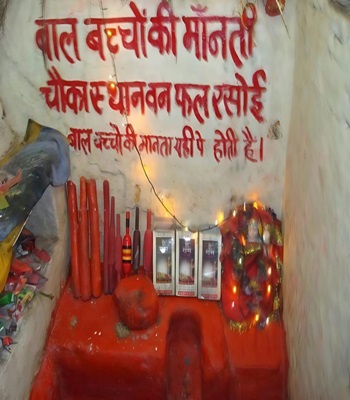 बाल बच्चों की माँनता
चौका स्थान वन फल रसोई
बाल बच्चो की मानता यही पे होती है।